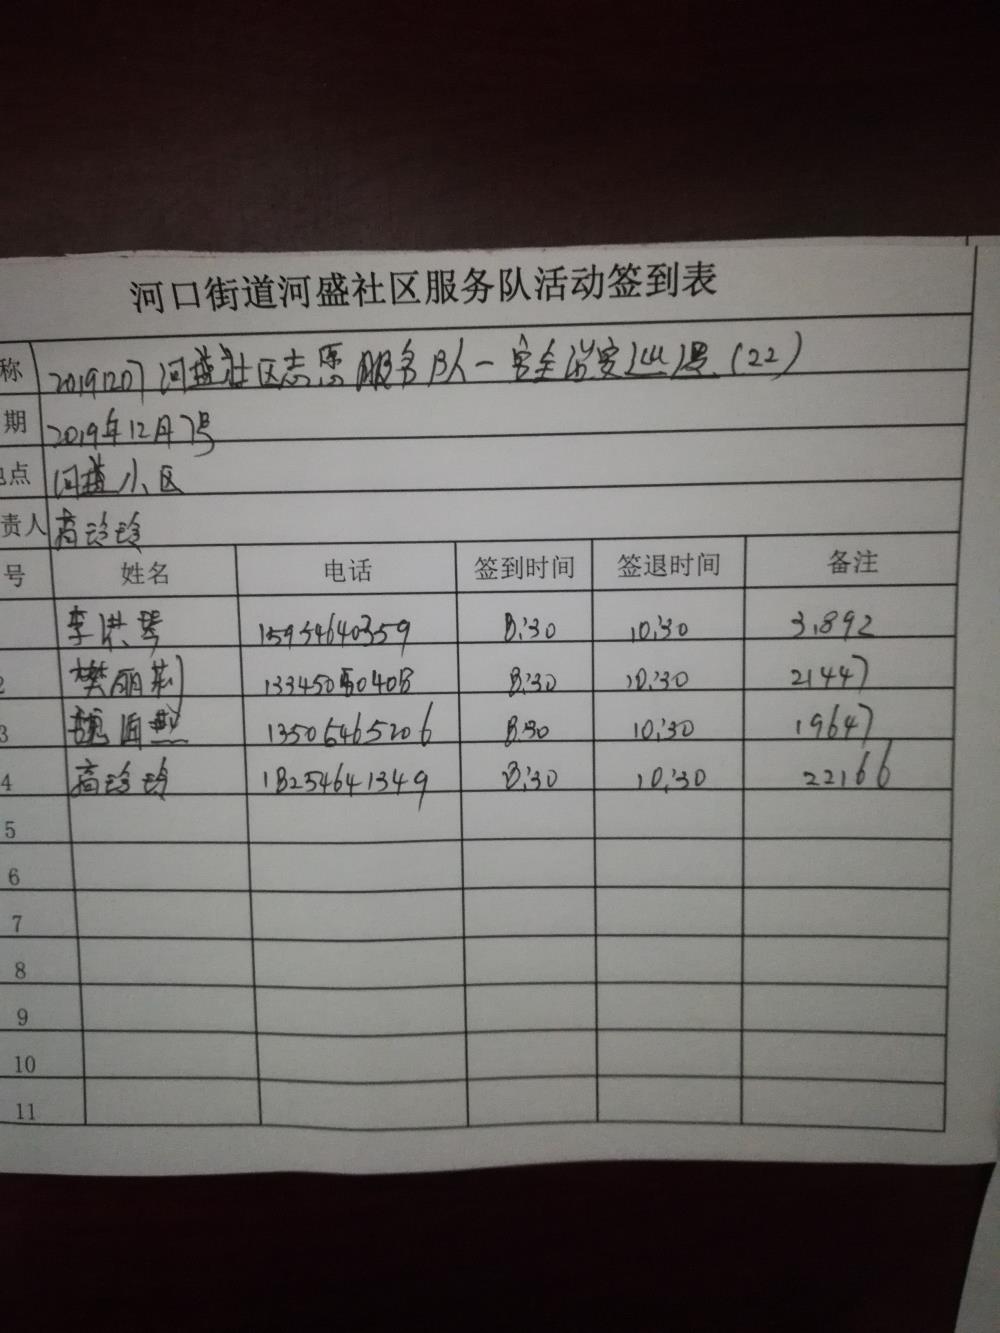 河口街道河盛社区服务队活动签到表
称 20191207河盛社区志愿服务队-安全治安巡逻(22)
期 2019年12月7号
地点 河盛小区
责人 高玲玲
号 姓名 电话 签到时间 签退时间 备注
李洪琴 15954640359 8:30 10:30 31892
2 樊丽莉 13345050408 8:30 10:30 21447
3 13506465206 8:30 10:30 19647
4 高玲玲 18254641349 8:30 10:30 22166
5
6
7
8
9
10
11